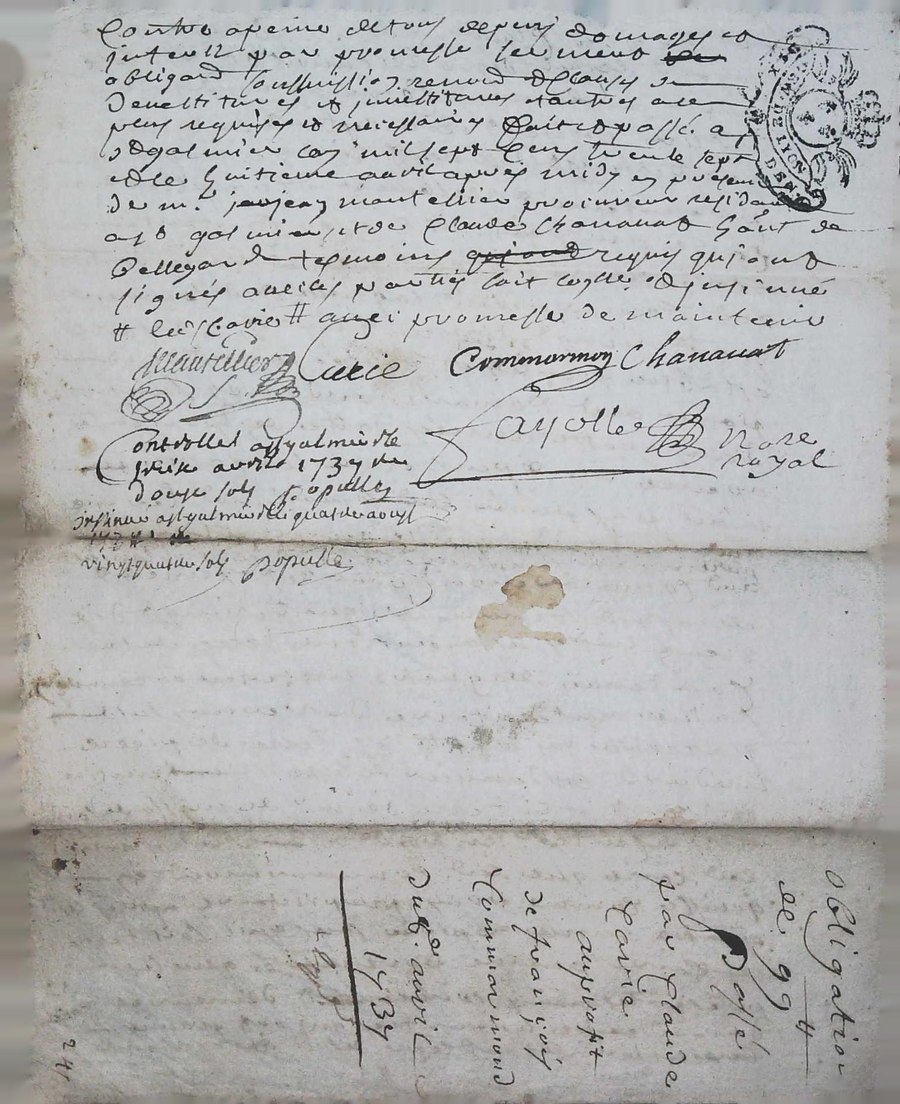 Contre apeine de tous depens domages et
interetz par promesse serment
obligaon soubmission renond & clauses de
devestitures et jnvestitures et autres a ce
plus requises et necessaires fait et passé a
st galmier lan mil sept cens trente sept
et le huitieme avril apres midy en presence
de mre jean montellier procureur residant
a st galmier et de Claude Chanavat hant de
Bellegarde temoins requis qui ont
signés avec les parties soit et jnsinué
# led Cavie # avec promesse de maintenir
Cavie Commarmon Chanavat
Fayolle nore
royal
Controllé a st galmier le
avril 1737
douze sols Populle
jnsinué a st galmier le quatre aoust
vingt quatre sols Populle
obligation
de 99 #
Passé
par Claude
Cavie
au proffit
de françois
Commarmond
du 8e avril
1737